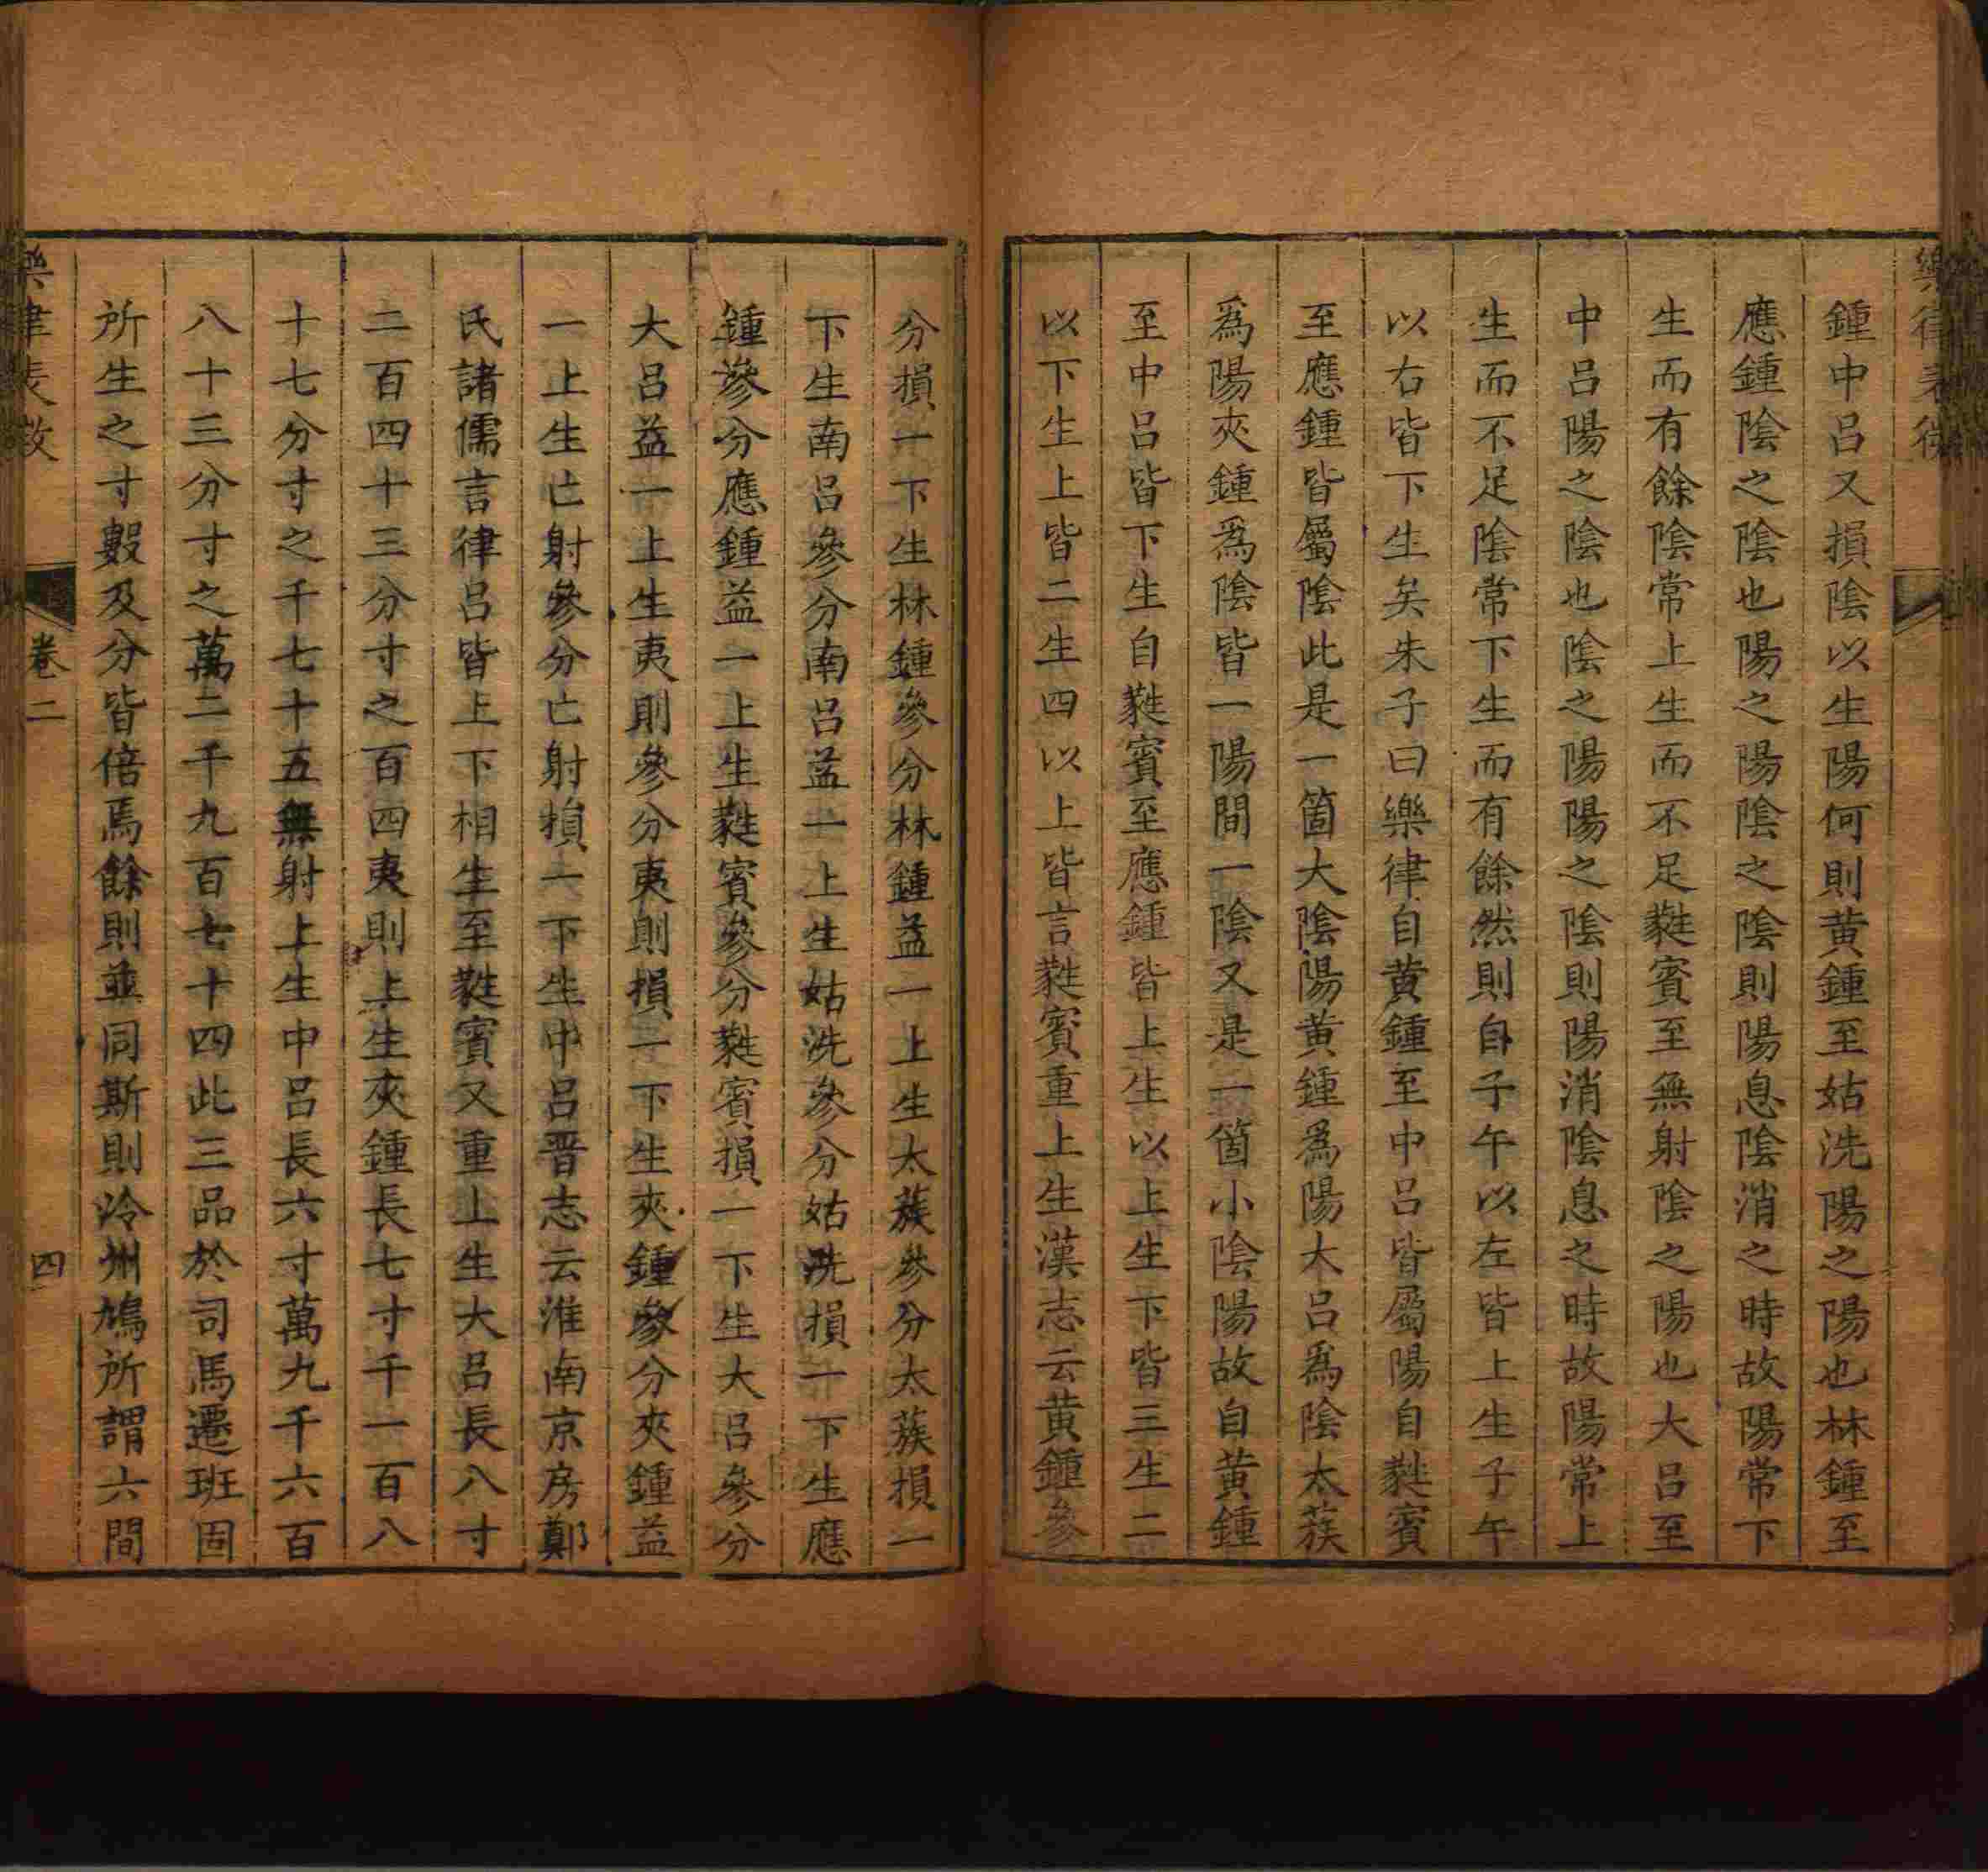 樂律表微
鍾中呂又損陰以生陽何則黄鍾至姑洗陽之陽也林鍾至
應鍾陰之陰也陽之陽陰之陰則陽息陰消之時故陽常下
生而有餘陰常上生而不足蕤賓至無射陰之陽也大呂至
中呂陽之陰也陰之陽陽之陰則陽消陰息之時故陽常上
生而不足陰常下生而有餘然則自子午以左皆上生子午
以右皆下生矣朱子曰樂律自黄鍾至中呂皆屬陽自蕤賓
至應鍾皆屬陰此是一箇大陰陽黄鍾爲陽大呂爲陰太蔟
爲陽夾鍾爲陰皆一陽間一陰又是一箇小陰陽故自黄鍾
至中呂皆下生自蕤賓至應鍾皆上生以上生下皆三生二
以下生上皆二生四以上皆言蕤賓重上生漢志云黄鍾參
分損一下生林鍾參分林鍾益一上生太蔟參分太蔟損一
下生南呂參分南呂益一上生姑洗參分姑洗損一下生應
鍾參分應鍾益一上生蕤賓參分蕤賓損一下生大呂參分
大呂益一上生夷則參分夷則損一下生夾鍾參分夾鍾益
一上生亡射參分亡射損一下生中呂晋志云淮南京房鄭
氏諸儒言律呂皆上下相生至蕤賓又重上生大呂長八寸
二百四十三分寸之百四夷則上生夾鍾長七寸千一百八
十七分寸之千七十五無射上生中呂長六寸萬九千六百
八十三分寸之萬二千九百七十四此三品於司馬遷班固
所生之寸數及分皆倍焉餘則並同斯則泠州鳩所謂六間
樂律表微 卷二 四